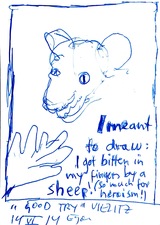 I meant
to draw:
I got bitten in
my fingers by a
sheep! (so much for
heroism!)
"GOOD TRY" VIELITZ
14 VI 14